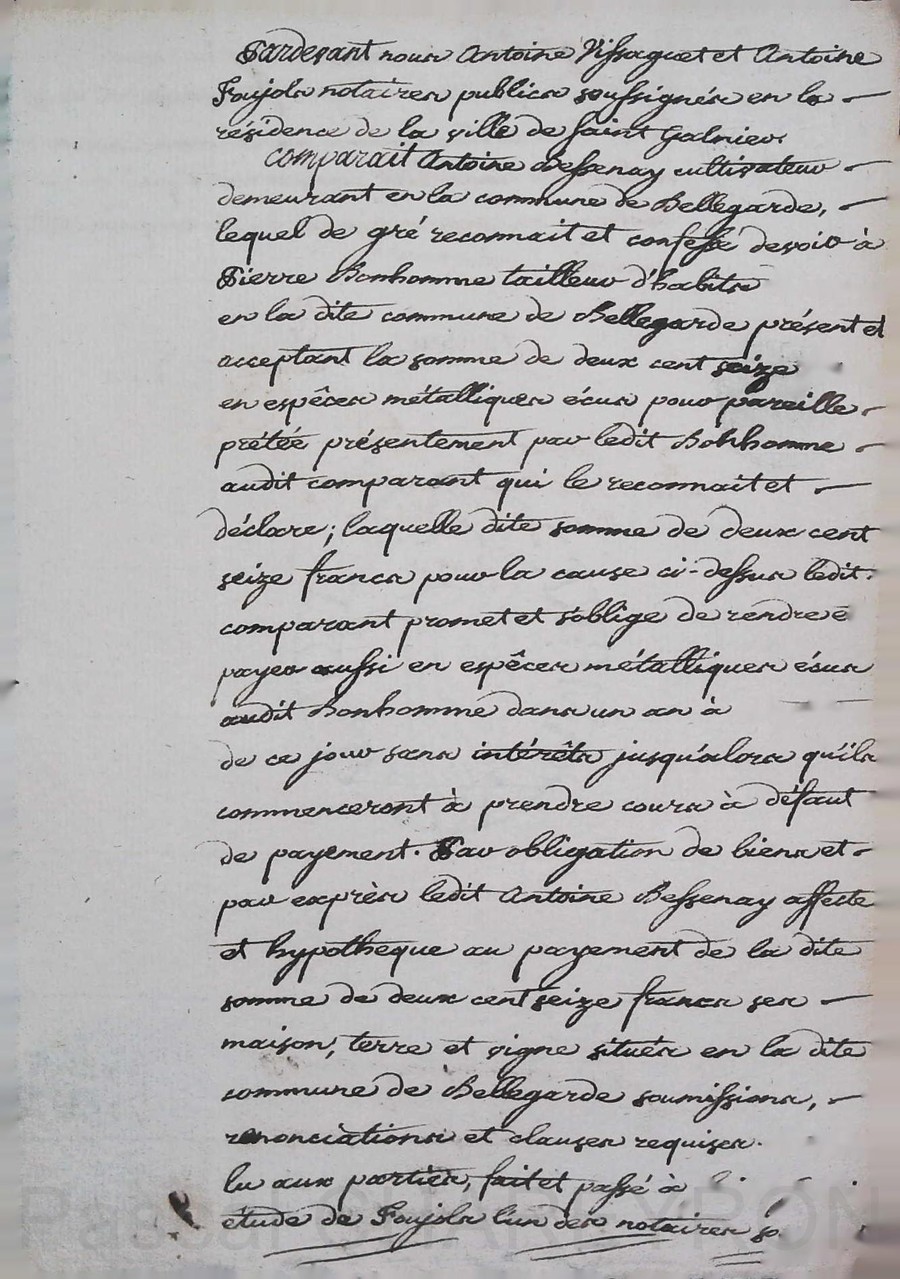 Pardevant nous Antoine Vissaguet et Antoine
Foujols notaires publics soussignés en la
résidence de la ville de Saint Galmier.
comparait Antoine Bessenay cultivateur
demeurant en la commune de Bellegarde,
lequel de gré reconnait et confessé devoir à
Pierre Bonhomme tailleur d'habits
en la dite commune de Bellegarde présent et
acceptant la somme de deux cent seize
en espêces métalliques écus pour pareille
prétée présentement par ledit Bohhomme
audit comparant qui le reconnait et
déclare; laquelle dite somme de deux cent
seize francs pour la cause ci-dessus ledit
comparant promet et s'oblige de rendre é
payer aussi en espêces métalliques écus
audit Bonhomme dans un an à
de ce jour sans intérêts jusqu'alors qu'ils
commenceront à prendre cours à défaut
de payement. Par obligation de biens et
par exprès ledit Antoine Bessenay affecte
et hypotheque au payement de la dite
somme de deux cent seize francs ses
maison, terre et vigne situés en la dite
commune de Bellegarde soumissions,
renonciations et clauses requises.
lu aux parties, fait et passé à
étude de Foujols l'un des notaires so
Pascal CHAREYRON